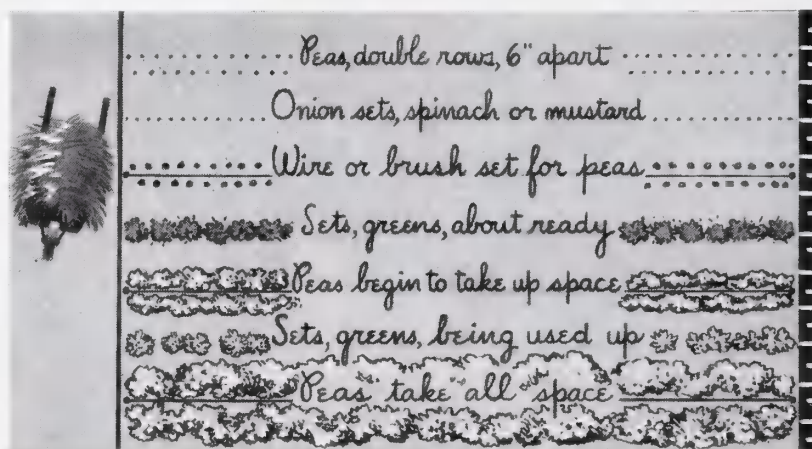 Peas, double rows, 6" apart
Onion sets, spinach or mustard
Wire or brush set for peas
Sets, greens, about ready
Peas begin to take up space
Sets, greens, being used up
Peas take all space